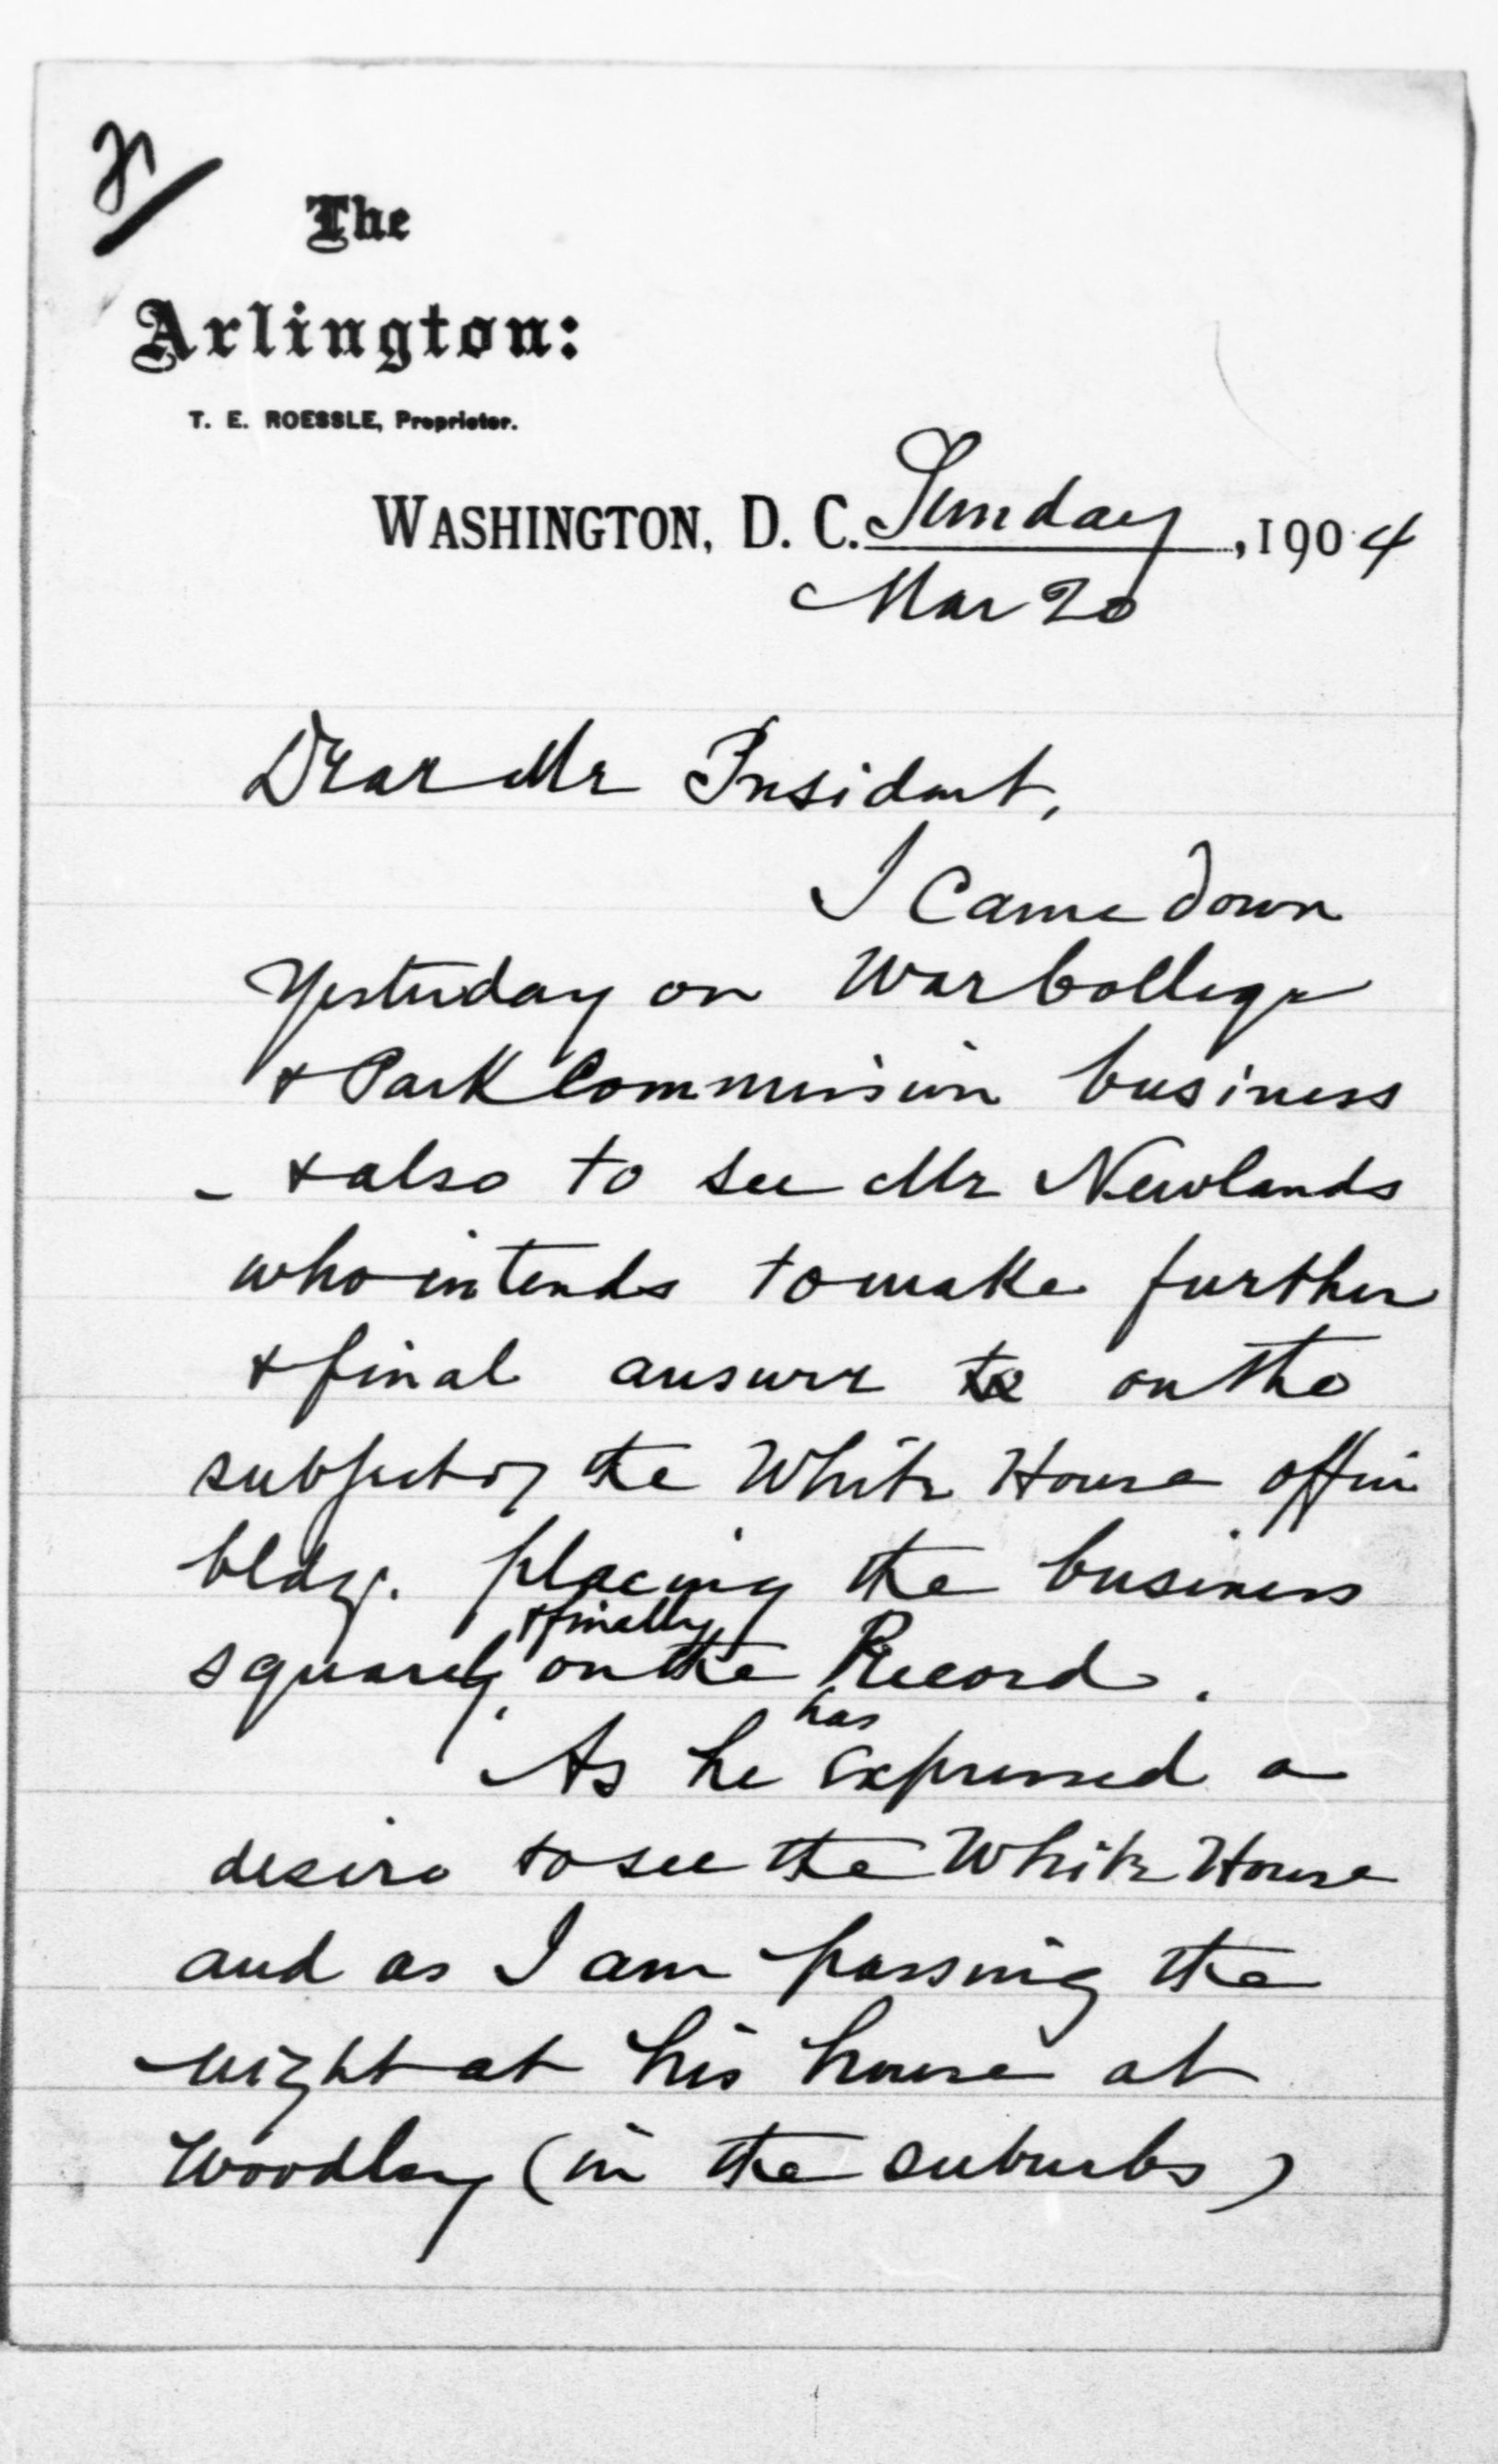 The
Arlington:
T. E. ROESSLE, Proprietor.
WASHINGTON, D. C. Sunday, 1904
Mar 20
Dear Mr President,
I came down
yesterday on War College
& Park Commission business
- & also to see Mr Newlands
who intends to make further
& final answer to on the
subject of the White House office
bldg. placing the business
squarely & finally on the Record.
As he has expressed a
desire to see the White House
and as I am passing the
night at his house at
Woodley (in the suburbs)